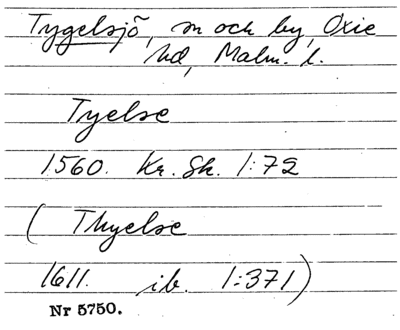 Tygelsjö, sn och by, Oxie
hd, Malm. l.
Tyelse
1560. Kr. Sk. 1:72
( Thyelse
1611. ib. 1:371)
Nr 5750.